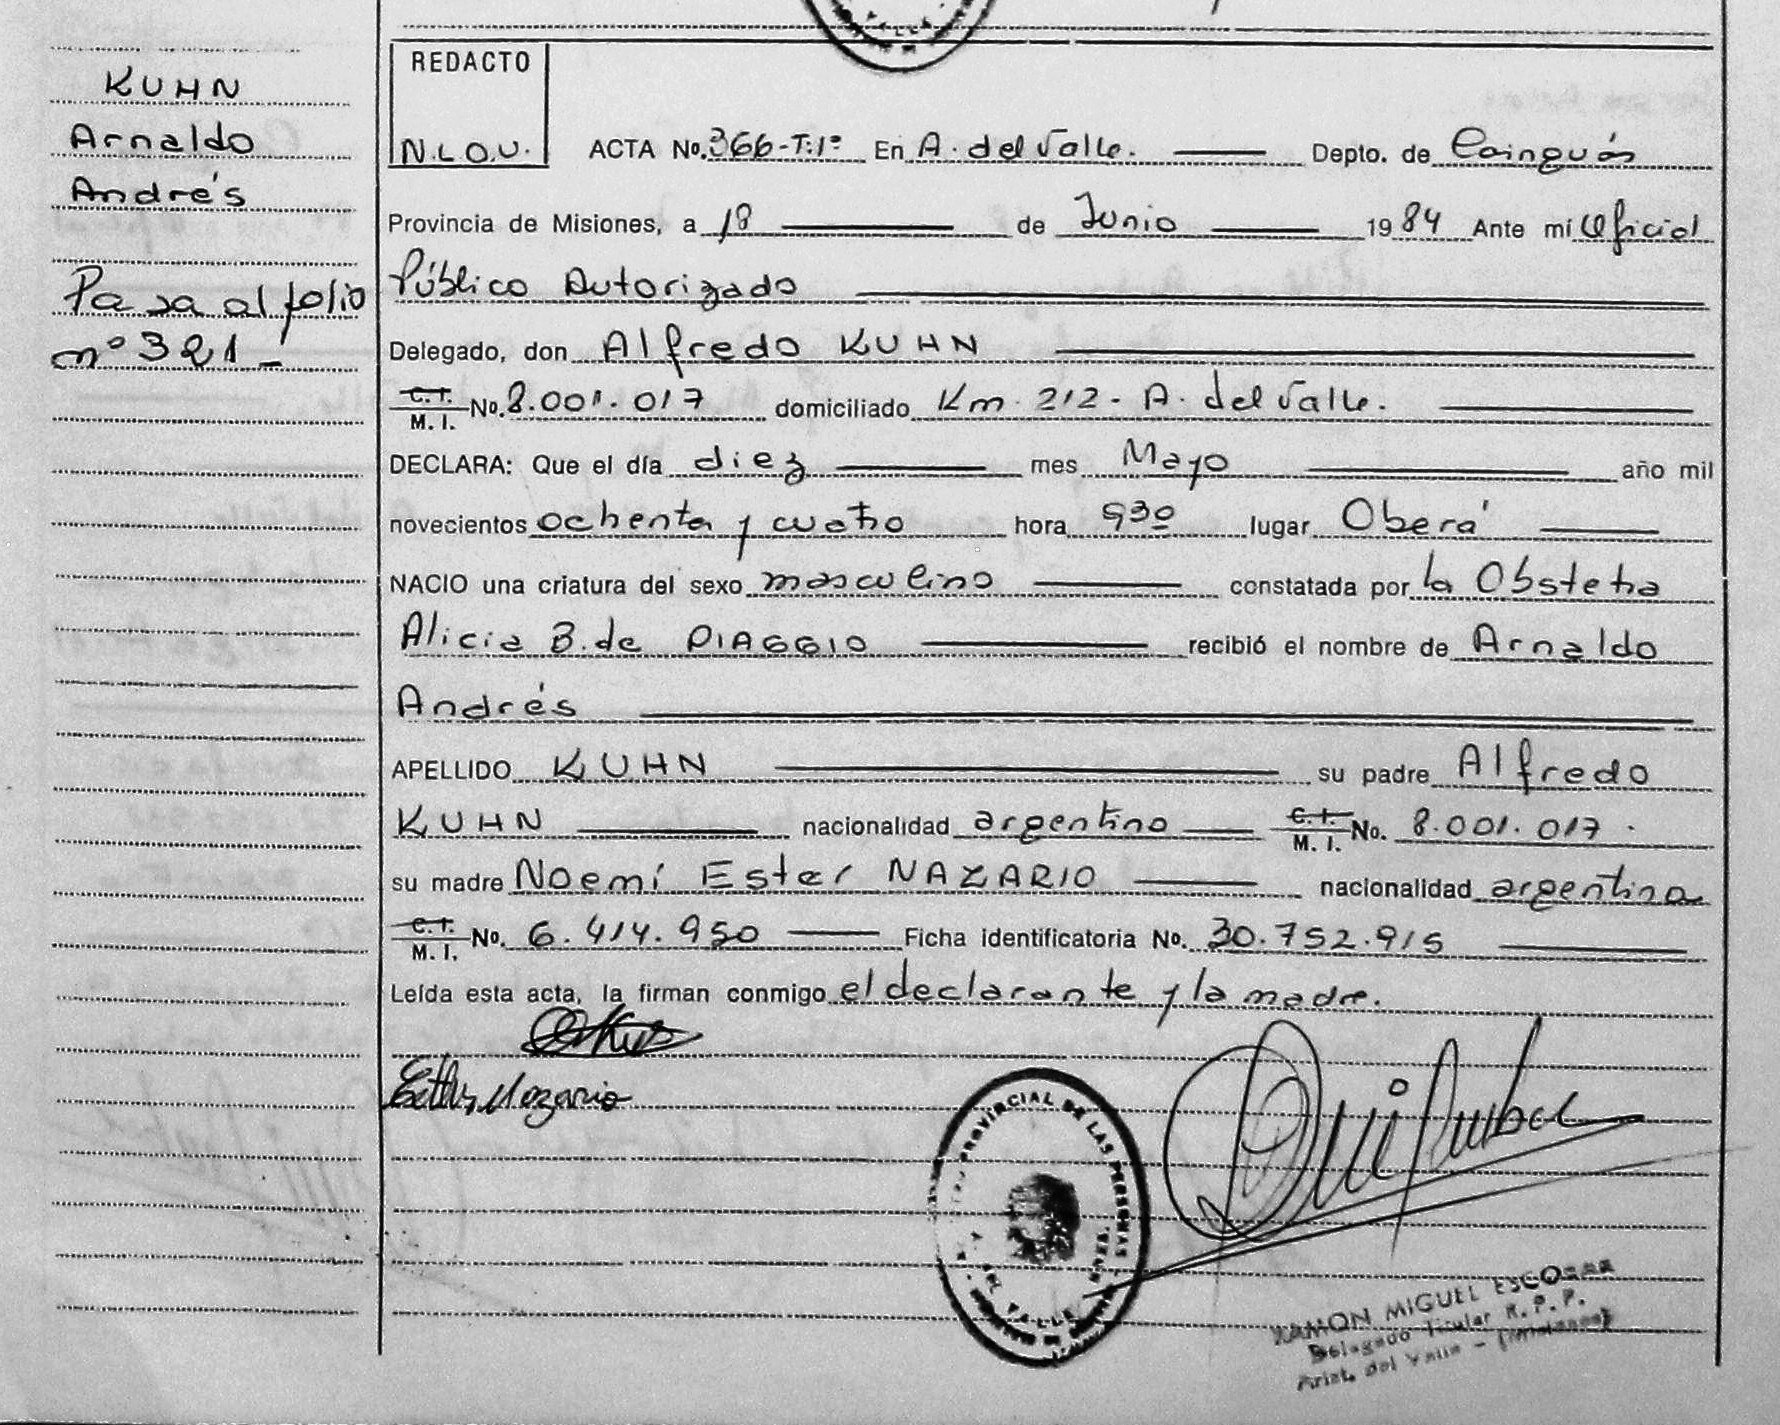 KUHN
Arnaldo
Andrés
Pasa al folio
nº 321-
REDACTO
N.L.O.U.
ACTA No. 366-T:1º En A. del Valle. Depto. de Cainguás
Provincia de Misiones, a 18 de Junio 1984 Ante mí Oficial
Público Autorizado
Delegado, don Alfredo KUHN
C.I. M. I. No. 8.001.017 domiciliado Km. 212 - A. del Valle.
DECLARA: Que el día diez mes Mayo año mil
novecientos ochenta y cuatro hora 9 30 lugar Oberá
NACIO una criatura del sexo masculino constatada por la Obstetra
Alicia B. de PIAGGIO recibió el nombre de Arnaldo
Andrés
APELLIDO KUHN su padre Alfredo
KUHN nacionalidad argentino C.I. M. I. No. 8.001.017.
su madre Noemí Ester NAZARIO nacionalidad argentina
C.I. M. I. No. 6.414.950 Ficha identificatoria No. 30.752.915
Leída esta acta, la firman conmigo el declarante y la madre.
PROVINCIAL DE LAS PERSONAS
DEL VALLE
RAMON MIGUEL ESCOBAR
Delegado Titular R. P. P.
Arist. del Valle - (Misiones)